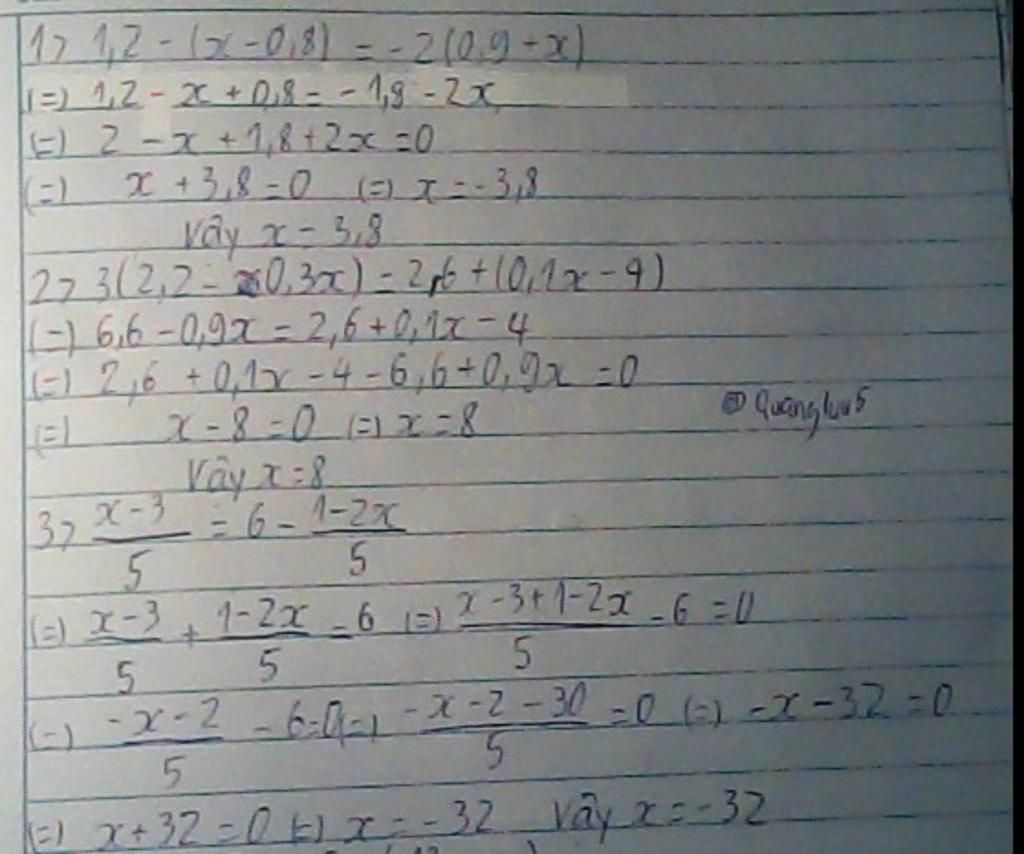 1> 1,2 - (x - 0,8) = -2(0,9 + x)
(=) 1,2 - x + 0,8 = - 1,8 - 2x
(=) 2 - x + 1,8 + 2x = 0
(=) x + 3,8 = 0 (=) x = -3,8
Vây x = 3,8
2> 3(2,2 - 0,3x) = 2,6 + (0,1x - 4)
(=) 6,6 - 0,9x = 2,6 + 0,1x - 4
(=) 2,6 + 0,1x - 4 - 6,6 + 0,9x = 0
(=) x - 8 = 0 (=) x = 8
@Quangluu5
Vây x = 8
3> \frac{x-3}{5} = 6 - \frac{1-2x}{5}
(=) \frac{x-3}{5} + \frac{1-2x}{5} - 6 (=) \frac{x-3+1-2x}{5} - 6 = 0
(=) \frac{-x-2}{5} - 6 = 0 (=) \frac{-x-2-30}{5} = 0 (=) -x - 32 = 0
(=) x + 32 = 0 (=) x = -32 Vây x = -32